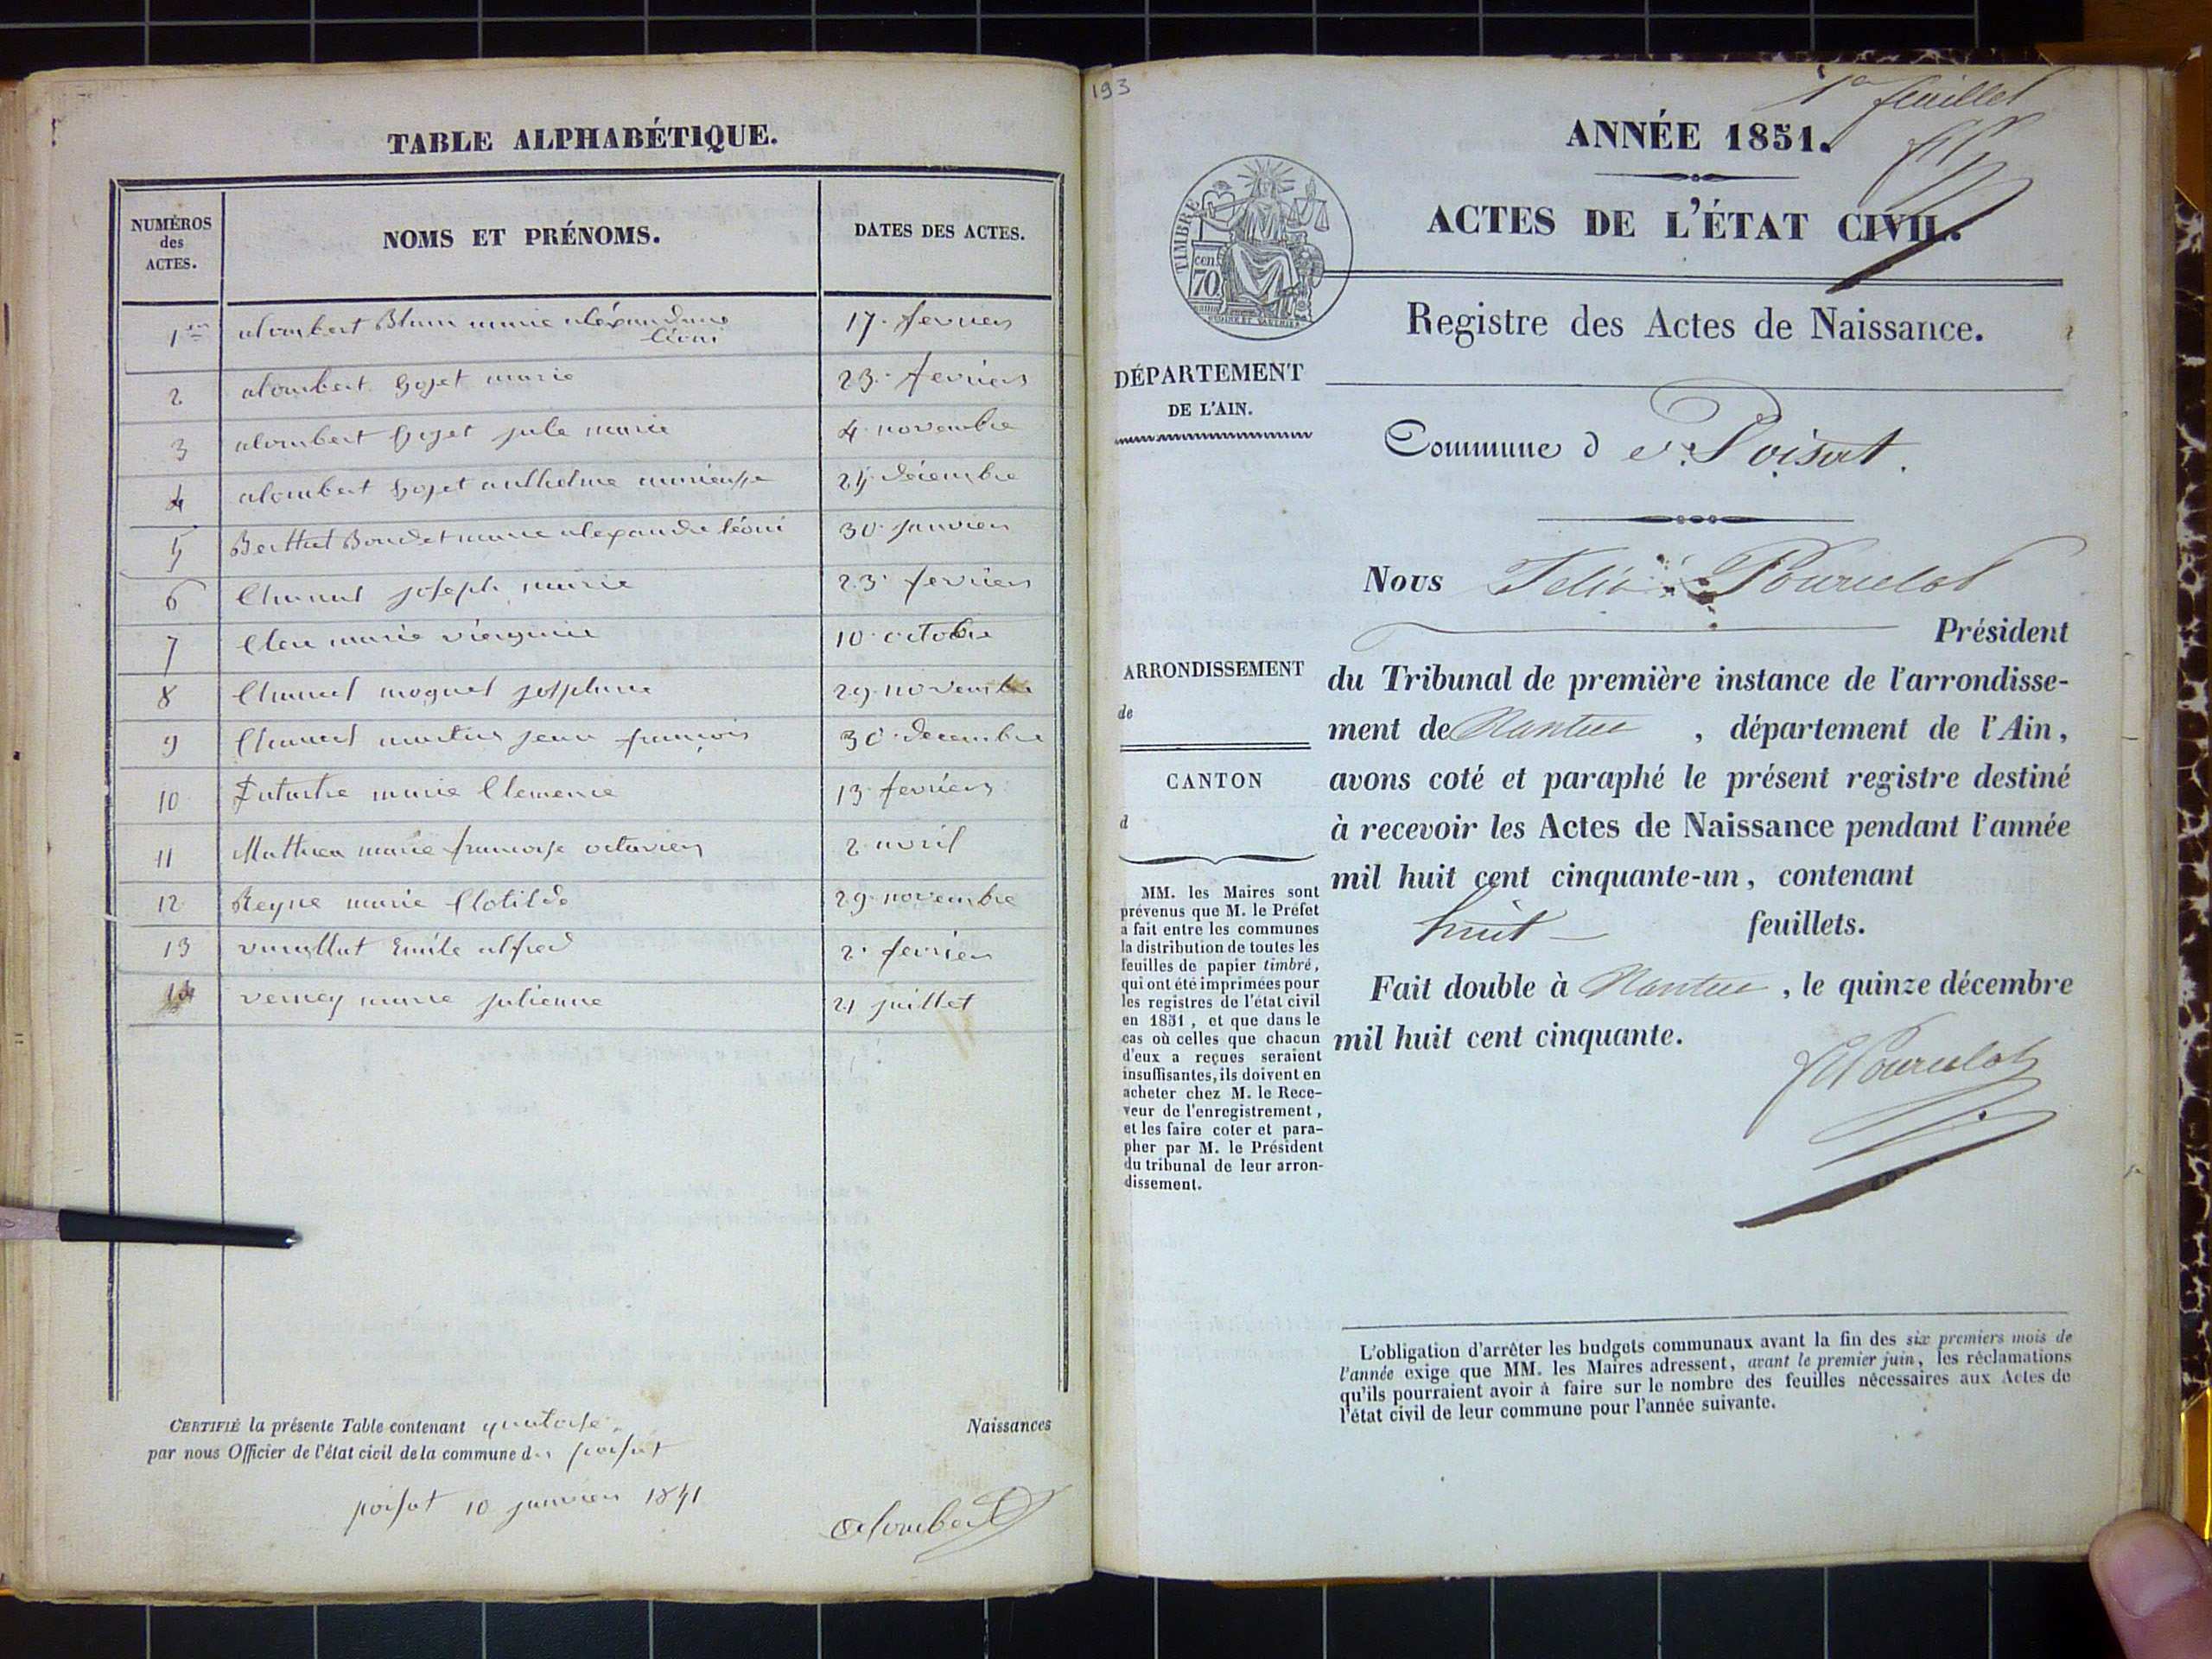 TABLE ALPHABÉTIQUE.
NUMÉROS des ACTES.
NOMS ET PRÉNOMS.
DATES DES ACTES.
1er alombert Blanc marie aléxandrine léoni 17 fevrier
2 alombert Goget marie 23 fevrier
3 alombert Goget jule marie 4 novembre
4 alombert Goget anthelme 25 décembre
5 Berthet Bondet marie alexandre léoni 30 janvier
6 joseph marie 23 fevrier
7 marie virginie 10 octobre
8 Chanel moguet 29 novembre
9 Chanel martin jean françois 30 decembre
10 marie Clemence 13 fevriers
11 Mathieu marie françoise octavien 2 avril
12 Reyne marie Clotilde 29 novembre
13 Emile alfred 2 fevrier
14 verney marie julienne 21 juillet
CERTIFIÉ la présente Table contenant quatorse Naissances
par nous Officier de l'état civil de la commune de poisat
poisat 10 janvier 1851
alombert
193
1er feuillet
ANNÉE 1851.
ACTES DE L'ÉTAT CIVIL.
TIMBRE
70 cen.
Registre des Actes de Naissance.
DÉPARTEMENT
DE L'AIN.
Commune de Poisat.
Nous Félix Pourcelot
Président
ARRONDISSEMENT
de
CANTON
d
du Tribunal de première instance de l'arrondisse-
ment de Nantua, département de l'Ain,
avons coté et paraphé le présent registre destiné
à recevoir les Actes de Naissance pendant l'année
mil huit cent cinquante-un, contenant
huit feuillets.
Fait double à Nantua, le quinze décembre
mil huit cent cinquante.
Pourcelot
MM. les Maires sont
prévenus que M. le Préfet
a fait entre les communes
la distribution de toutes les
feuilles de papier timbré,
qui ont été imprimées pour
les registres de l'état civil
en 1851, et que dans le
cas où celles que chacun
d'eux a reçues seraient
insuffisantes, ils doivent en
acheter chez M. le Rece-
veur de l'enregistrement,
et les faire coter et para-
pher par M. le Président
du tribunal de leur arron-
dissement.
L'obligation d'arrêter les budgets communaux avant la fin des six premiers mois de
l'année exige que MM. les Maires adressent, avant le premier juin, les réclamations
qu'ils pourraient avoir à faire sur le nombre des feuilles nécessaires aux Actes de
l'état civil de leur commune pour l'année suivante.